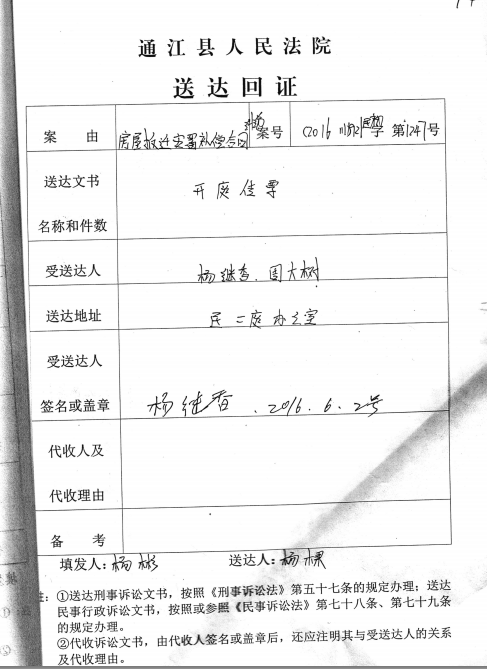 通江县人民法院
送达回证
案 由 房屋拆迁安置补偿合同纠纷 案号 (2016 川1921民初字 第1247号
送达文书
名称和件数 开庭传票
受送达人 杨继香、周大树
送达地址 民二庭办公室
受送达人
签名或盖章 杨继香 . 2016.6.2号
代收人及
代收理由
备 考
填发人:杨彬 送达人:杨
注:①送达刑事诉讼文书,按照《刑事诉讼法》第五十七条的规定办理;送达
民事行政诉讼文书,按照或参照《民事诉讼法》第七十八条、第七十九条
的规定办理。
②代收诉讼文书,由代收人签名或盖章后,还应注明其与受送达人的关系
及代收理由。